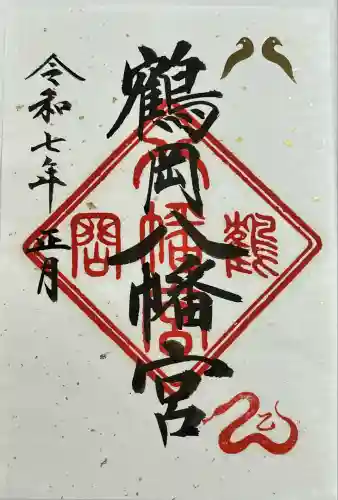 鶴岡八幡宮
令和七年 正月
鶴岡八幡宮